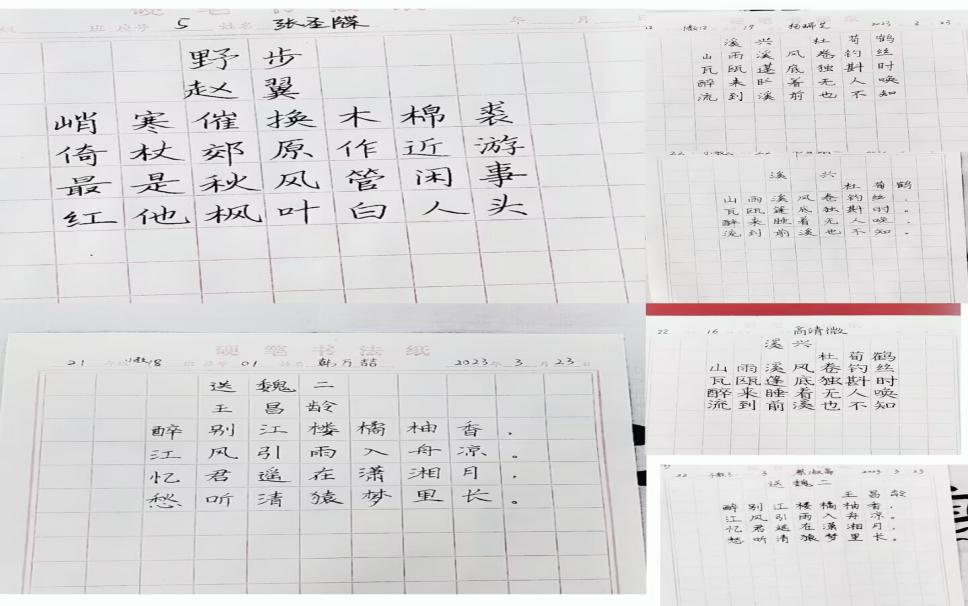 5 张圣
年 月
野步
赵翼
峭寒催换木棉裘
倚杖郊原作近游
最是秋风管闲事
红他枫叶白人头
19 2023 3 23
溪兴
杜荀鹤
山雨溪风卷钓丝
瓦瓯蓬底独斟时
醉来卧着无人唤
流到溪前也不知
22
溪兴
杜荀鹤
山雨溪风卷钓丝,
瓦瓯篷底独斟时。
醉来睡着无人唤,
流到前溪也不知。
硬笔书法纸
21 年 18 班 01 姓名 韩万喆 2023年3月23日
送魏二
王昌龄
醉别江楼橘柚香,
江风引雨入舟凉。
忆君遥在潇湘月,
愁听清猿梦里长。
22 16 高靖微
溪兴
杜荀鹤
山雨溪风卷钓丝
瓦瓯篷底独斟时
醉来睡着无人唤
流到前溪也不知
22 3 2023 3 23
送魏二
王昌龄
醉别江楼橘柚香,
江风引雨入舟凉。
忆君遥在潇湘月,
愁听清猿梦里长。